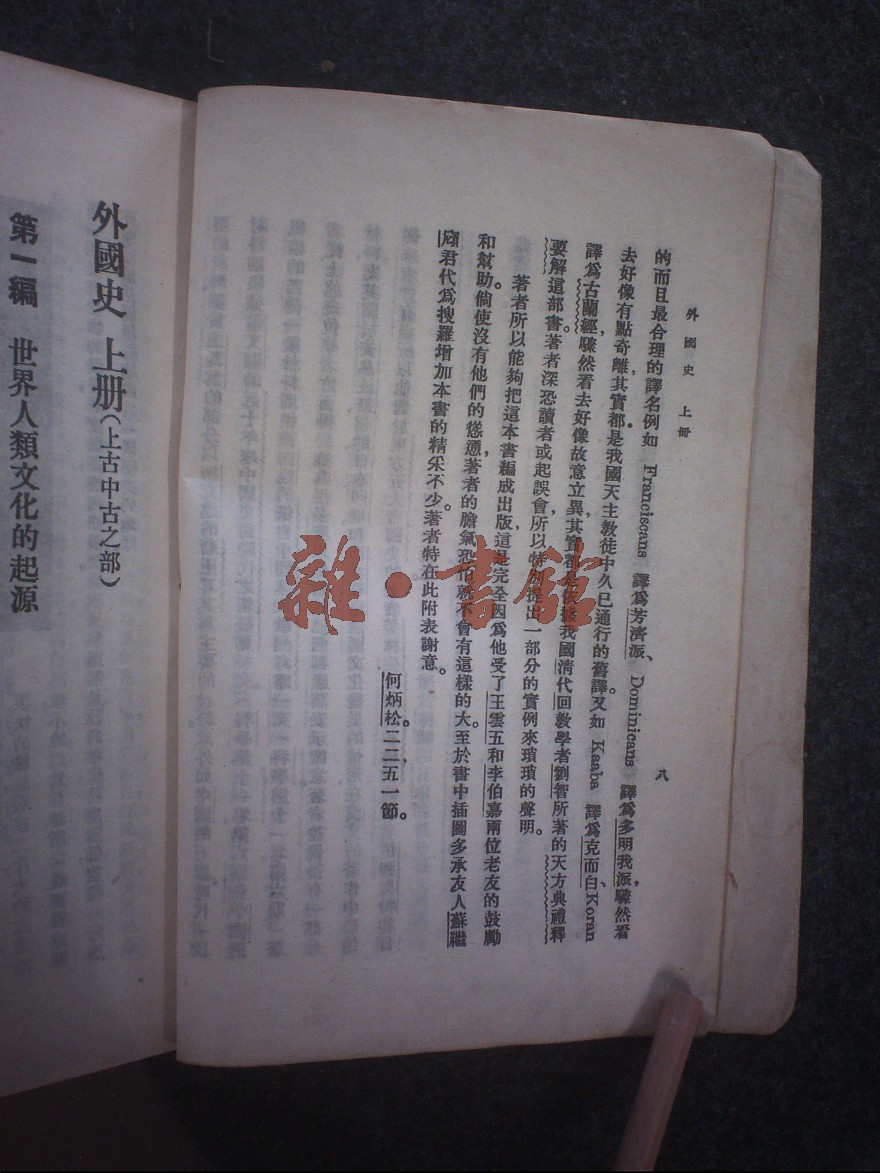 外國史 上册
八
的而且最合理的譯名例如 Franciscans 譯爲芳濟派、Dominicans 譯爲多明我派，驟然看
去好像有點奇離，其實都是我國天主教徒中久已通行的舊譯。又如 Kaaba 譯爲克而白、Koran
譯爲古蘭經，驟然看去好像故意立異，其實都是 我國清代回教學者劉智所著的天方典禮釋
要解這部書。著者深恐讀者或起誤會，所以特別提出一部分的實例來瑣瑣的聲明。
著者所以能夠把這本書編成出版，這是完全因爲他受了王雲五和李伯嘉兩位老友的鼓勵
和幫助。倘使沒有他們的慫恿，著者的膽氣恐怕就不會有這樣的大。至於書中插圖多承友人蘇繼
廎君代爲搜羅，增加本書的精采不少。著者特在此附表謝意。
何炳松。二二，五一節。
外國史 上册（上古中古之部）
第一編 世界人類文化的起源
雜·書館